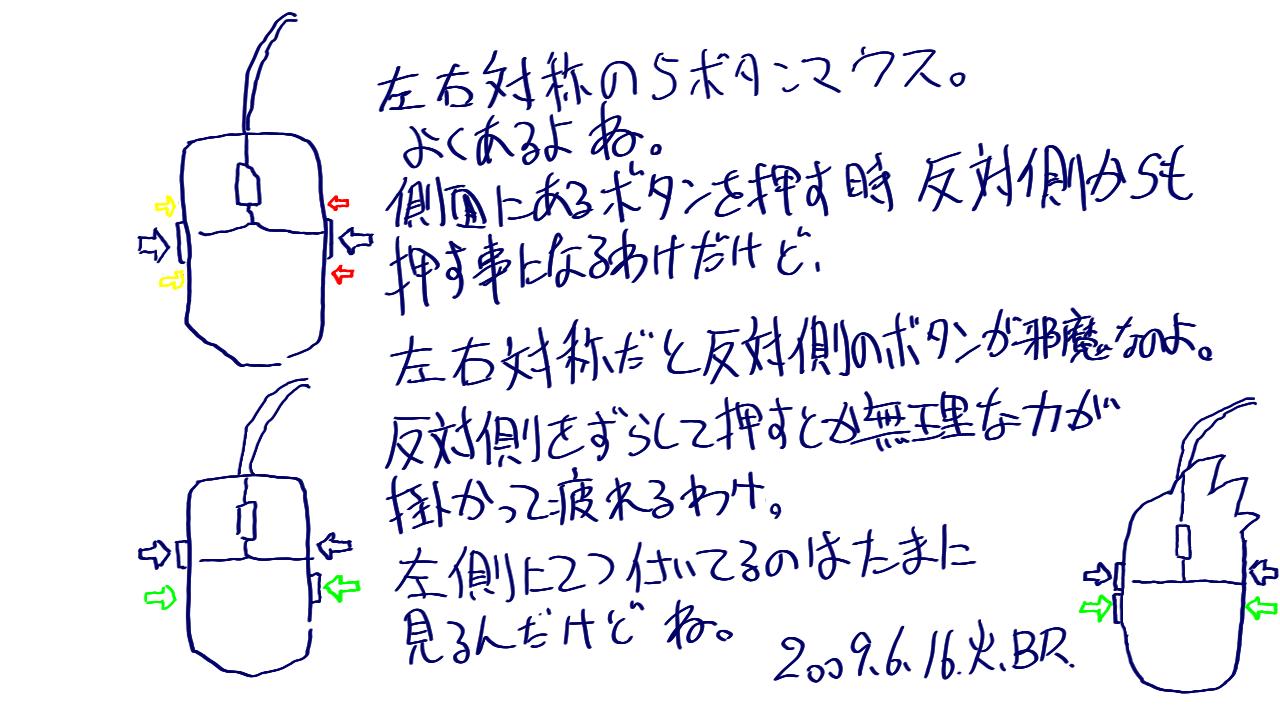 左右対称の5ボタンマウス。
よくあるよね。
側面にあるボタンを押す時反対側からも
押す事になるわけだけど、
左右対称だと反対側のボタンが邪魔なのよ。
反対側をずらして押すとか無理な力が
掛かって疲れるわけ。
左側に2つ付いてるのはたまに
見るんだけどね。
2009.6.16.火.BR.